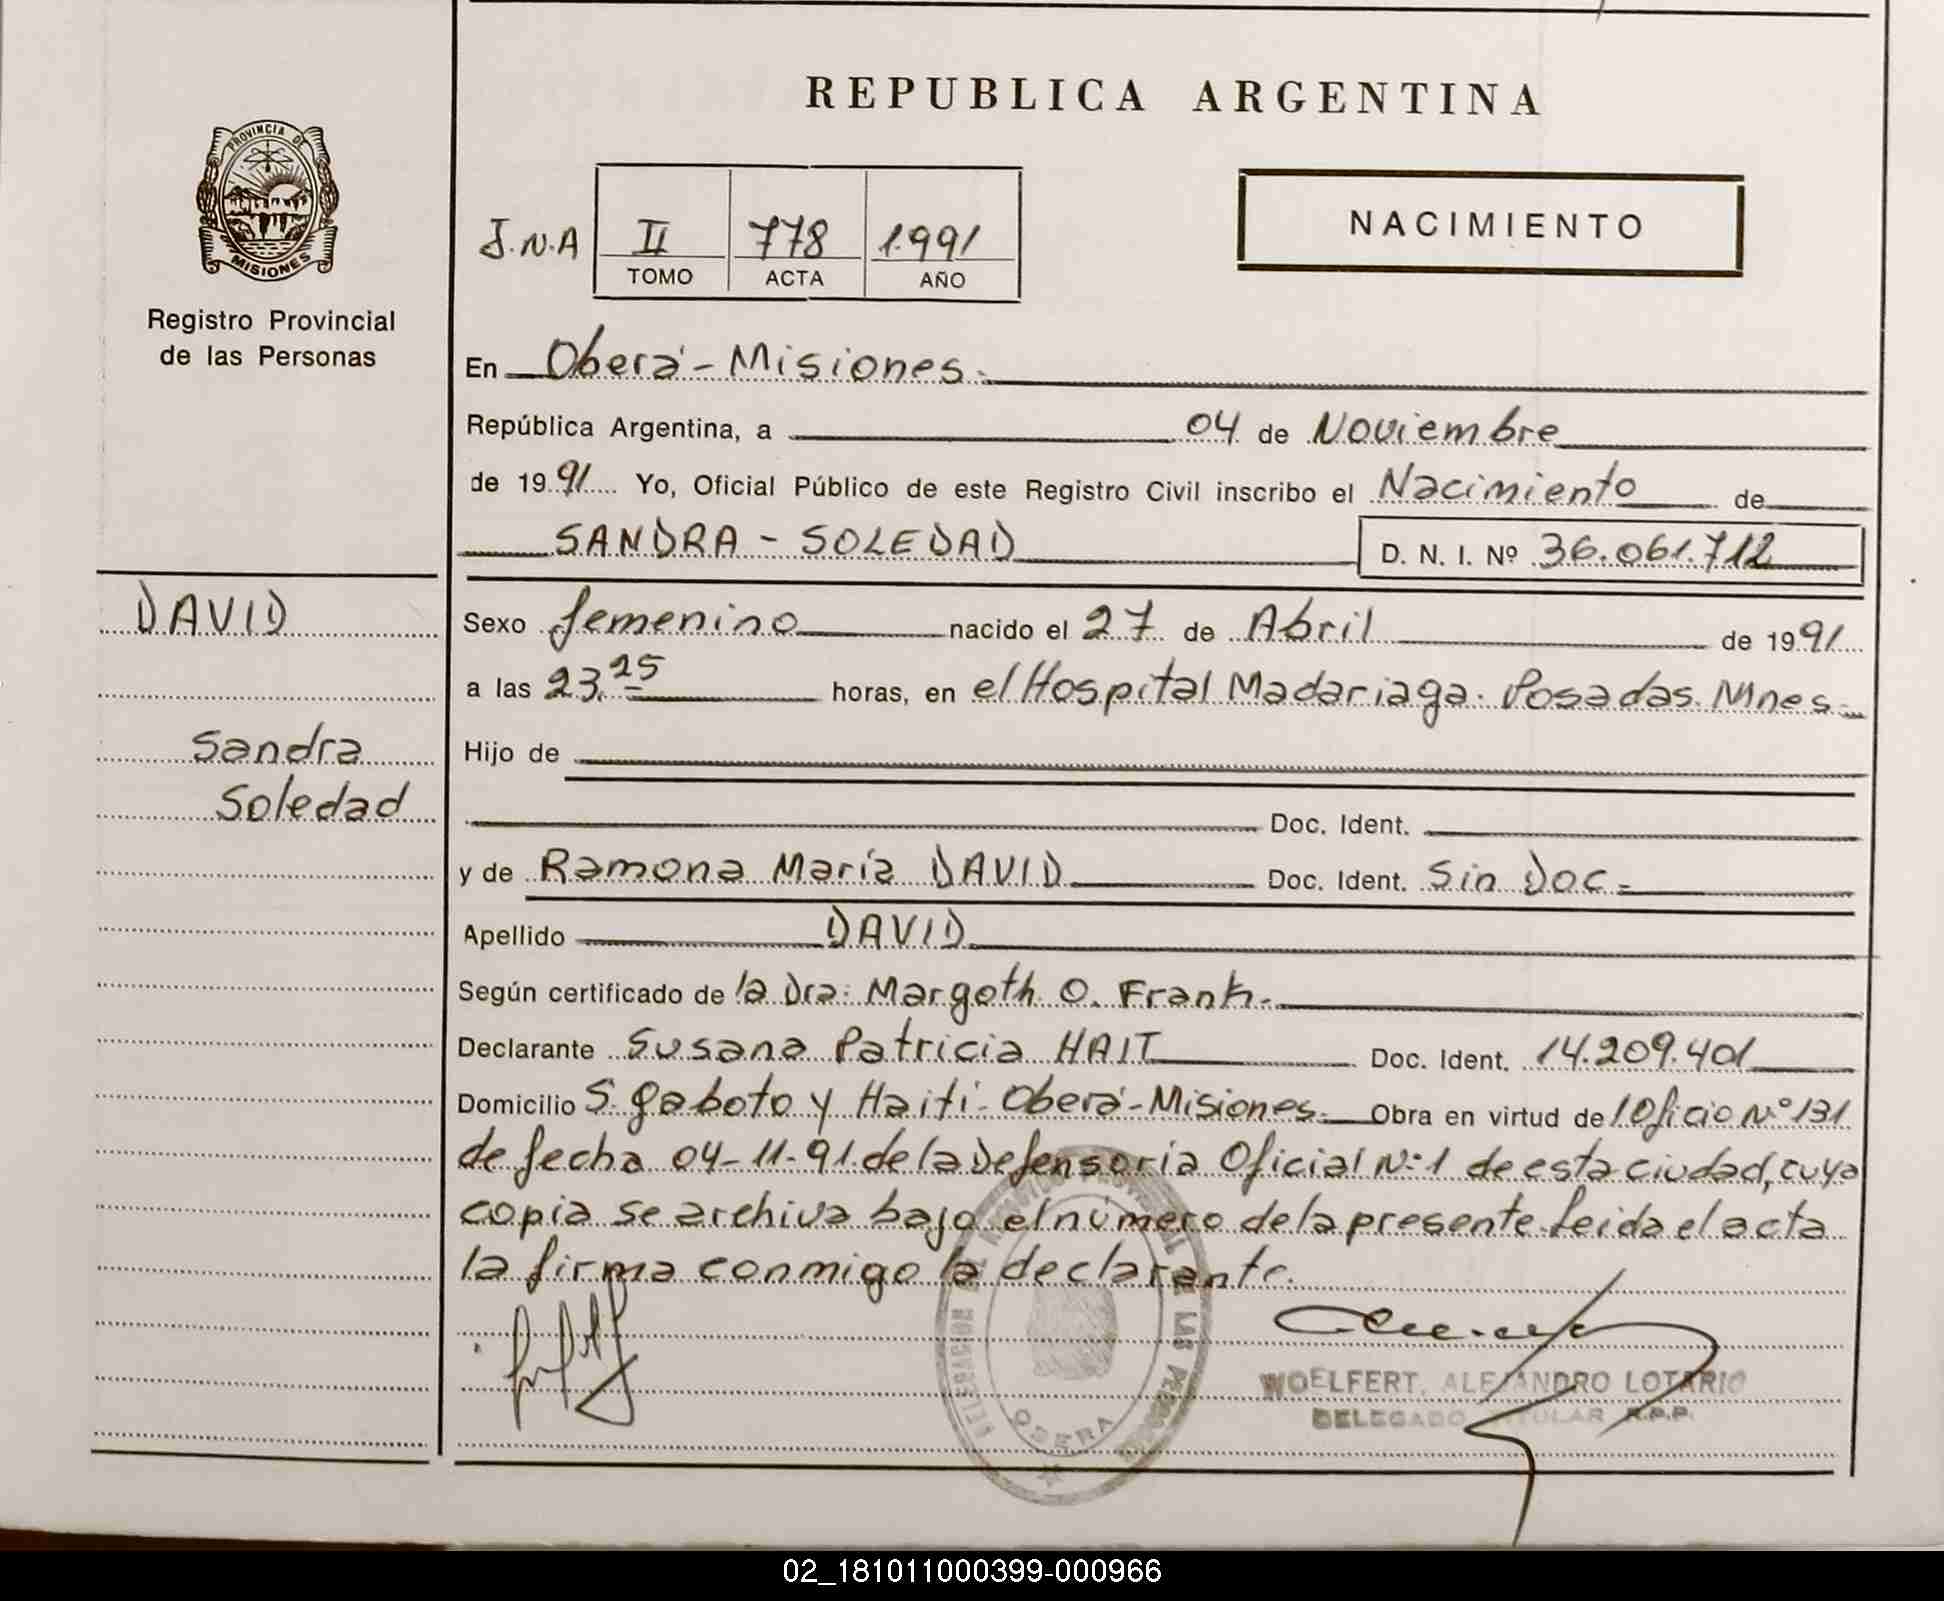 REPUBLICA ARGENTINA
PROVINCIA DE
MISIONES
Registro Provincial
de las Personas
J.N.A
II 778 1.991
TOMO ACTA AÑO
NACIMIENTO
En Oberá - Misiones.
República Argentina, a 04 de Noviembre
de 1991 Yo, Oficial Público de este Registro Civil inscribo el Nacimiento de
SANDRA - SOLEDAD D. N. I. Nº 36.061.712
DAVID
Sandra
Soledad
Sexo femenino nacido el 27 de Abril de 1991
a las 23.25 horas, en el Hospital Madariaga. Posadas. Mnes.
Hijo de
Doc. Ident.
y de Ramona María DAVID Doc. Ident. Sin Doc.
Apellido DAVID
Según certificado de la Dra. Margoth O. Frank.
Declarante Susana Patricia HAIT Doc. Ident. 14.209.401
Domicilio S. Gaboto y Haití - Oberá - Misiones. Obra en virtud de Oficio Nº 131
de fecha 04-11-91 de la Defensoría Oficial Nº 1 de esta ciudad, cuya
copia se archiva bajo el número de la presente. Leida el acta
la firma conmigo la declarante.
DE LAS
OBERA
WOELFERT, ALEJANDRO LOTARIO
DELEGADO TITULAR R.P.P.
02_181011000399-000966